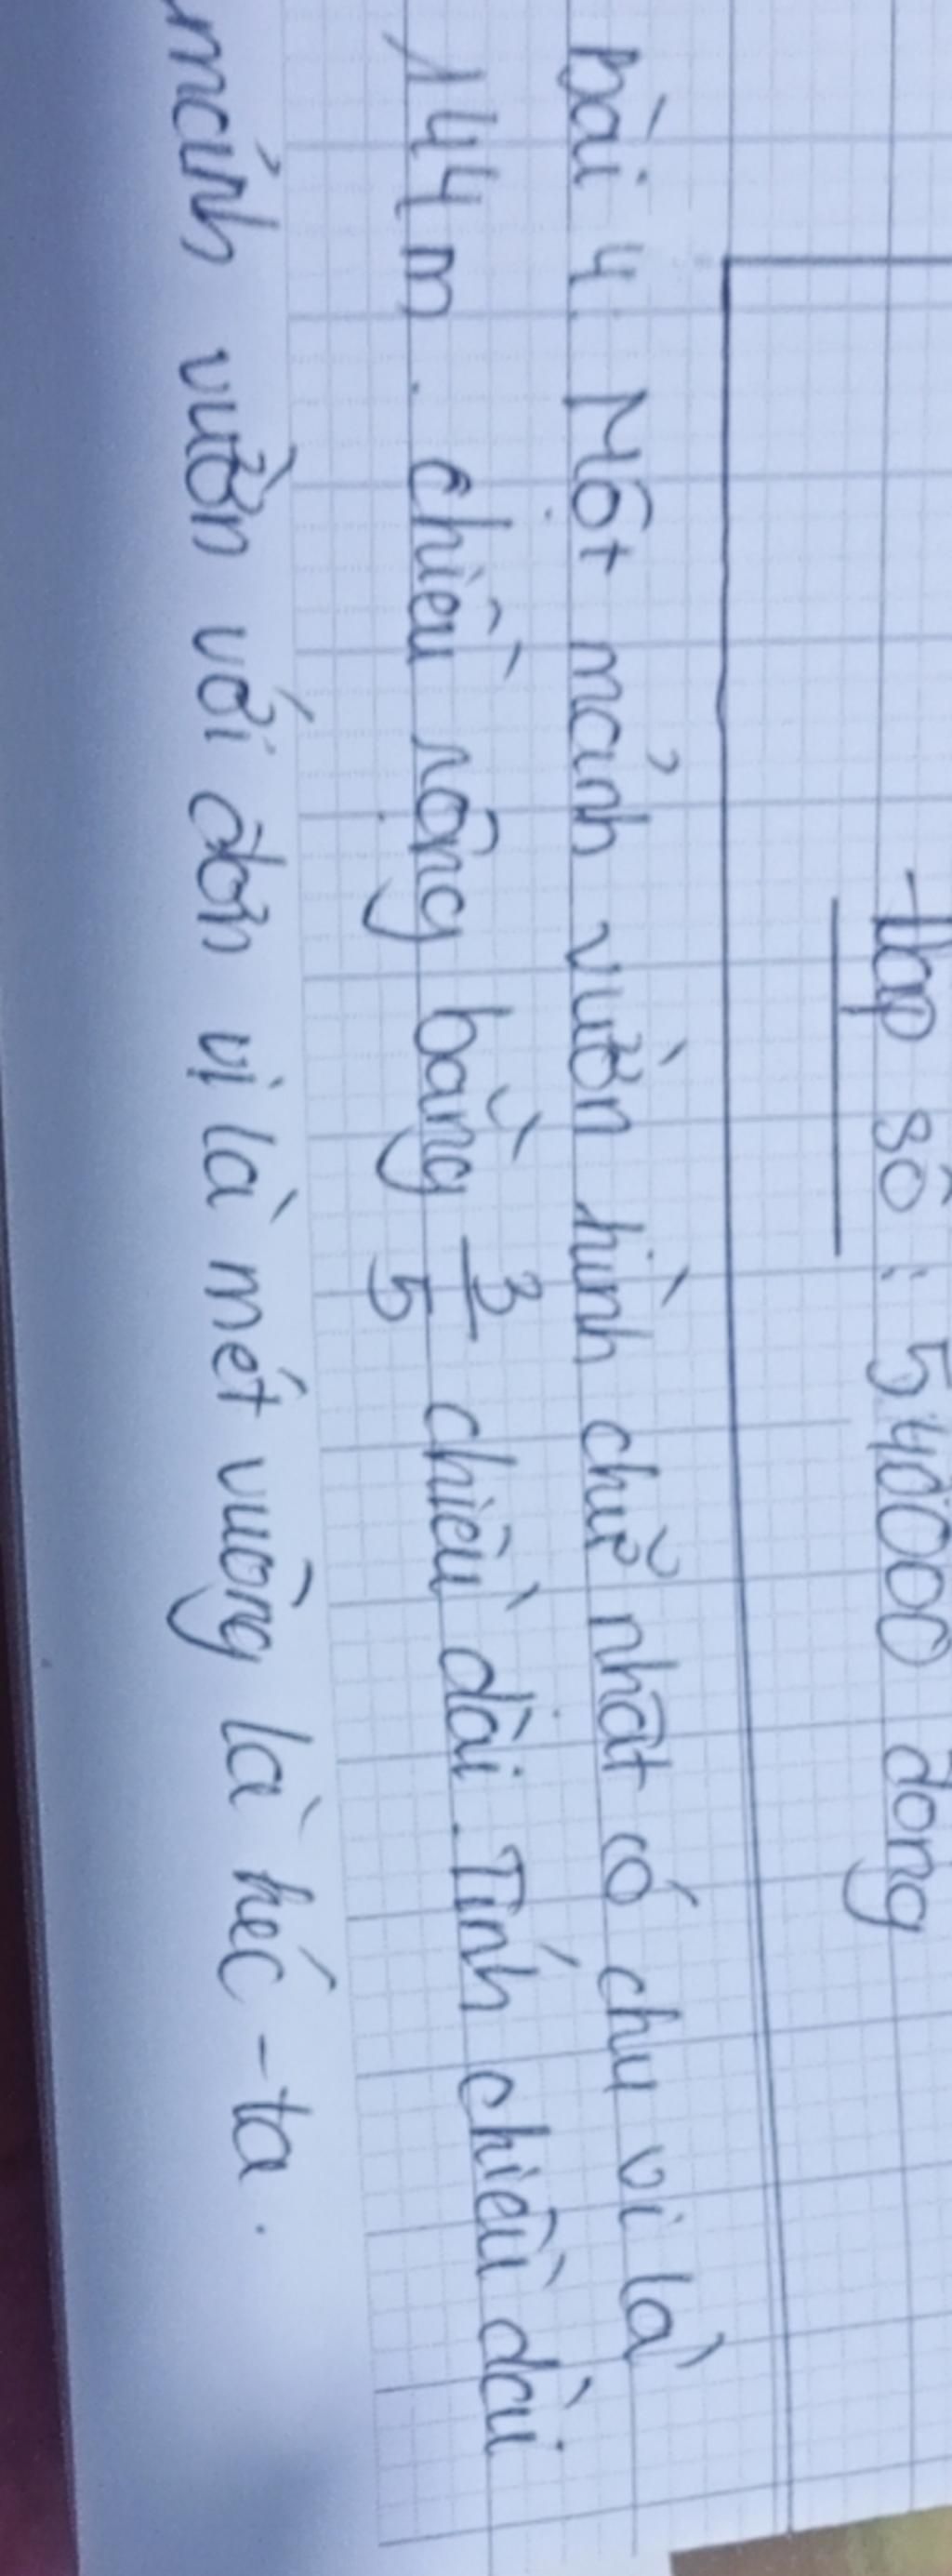 Đáp số : 54000 đồng
bài 4. Một mảnh vườn hình chữ nhật có chu vi là
144m. chiều rộng bằng 3/5 chiều dài. Tính chiều dài
mảnh vườn với đơn vị là mét vuông là héc-ta.